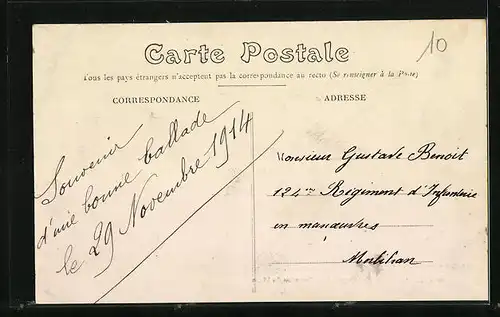 Carte Postale
10
Tous les pays étrangers n'acceptent pas la correspondance au recto (Se renseigner à la Poste)
CORRESPONDANCE
Souvenir
d'une bonne ballade
le 29 Novembre 1914
ADRESSE
Monsieur Gustave Benoit
124me Regiment d'Infanterie
en manœuvres
Morbihan